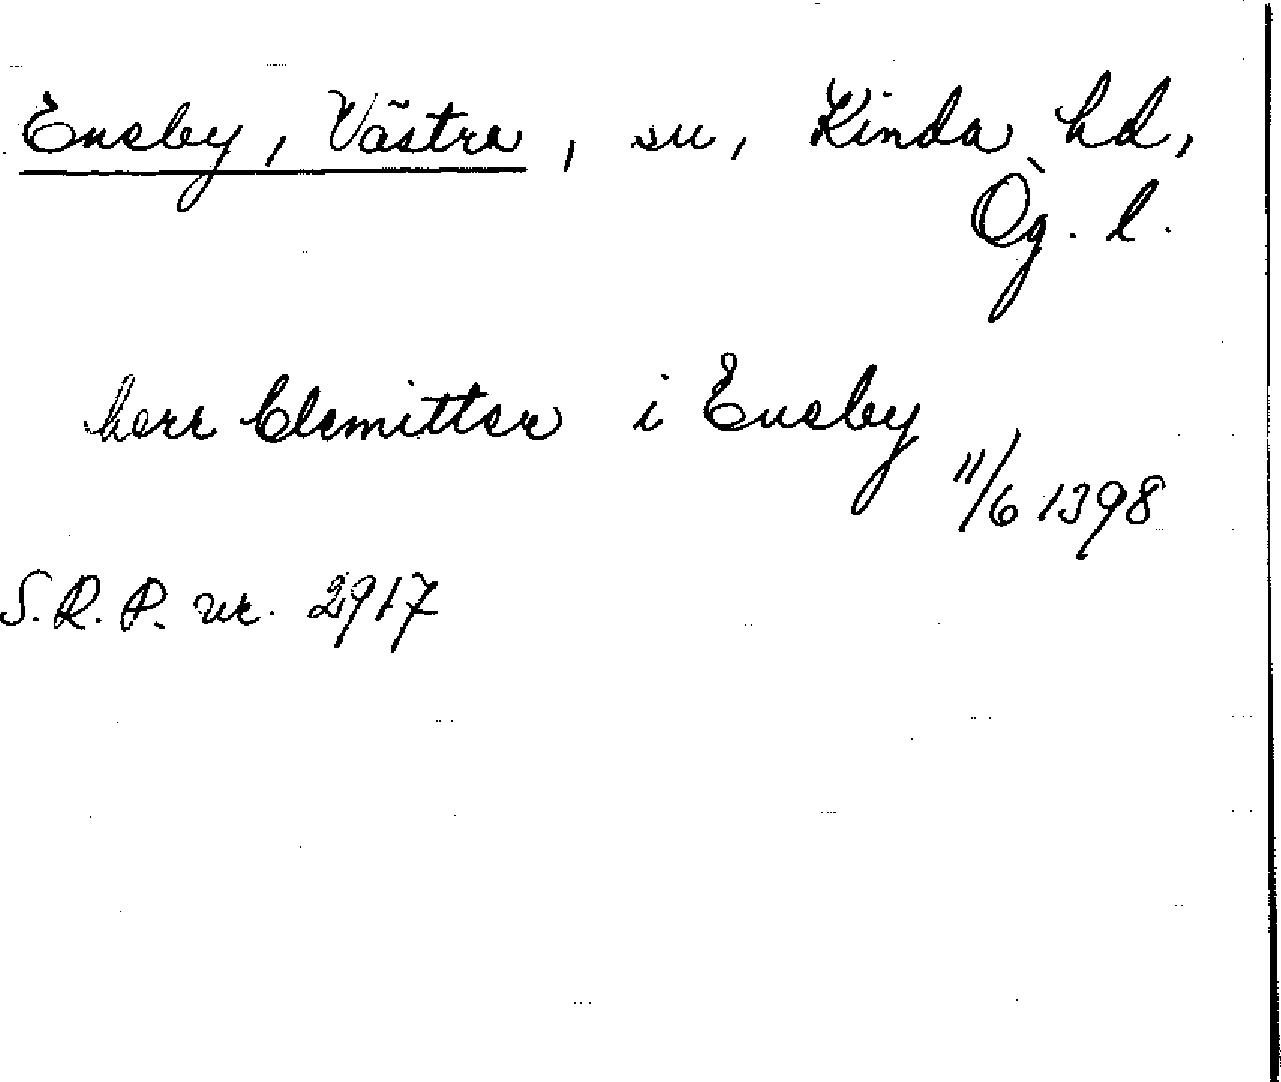 Eneby, Västra, sn, Kinda hd,
Ög. l.
herr Clemitter i Eneby
11/6 1398
S.R.P. nr. 2917